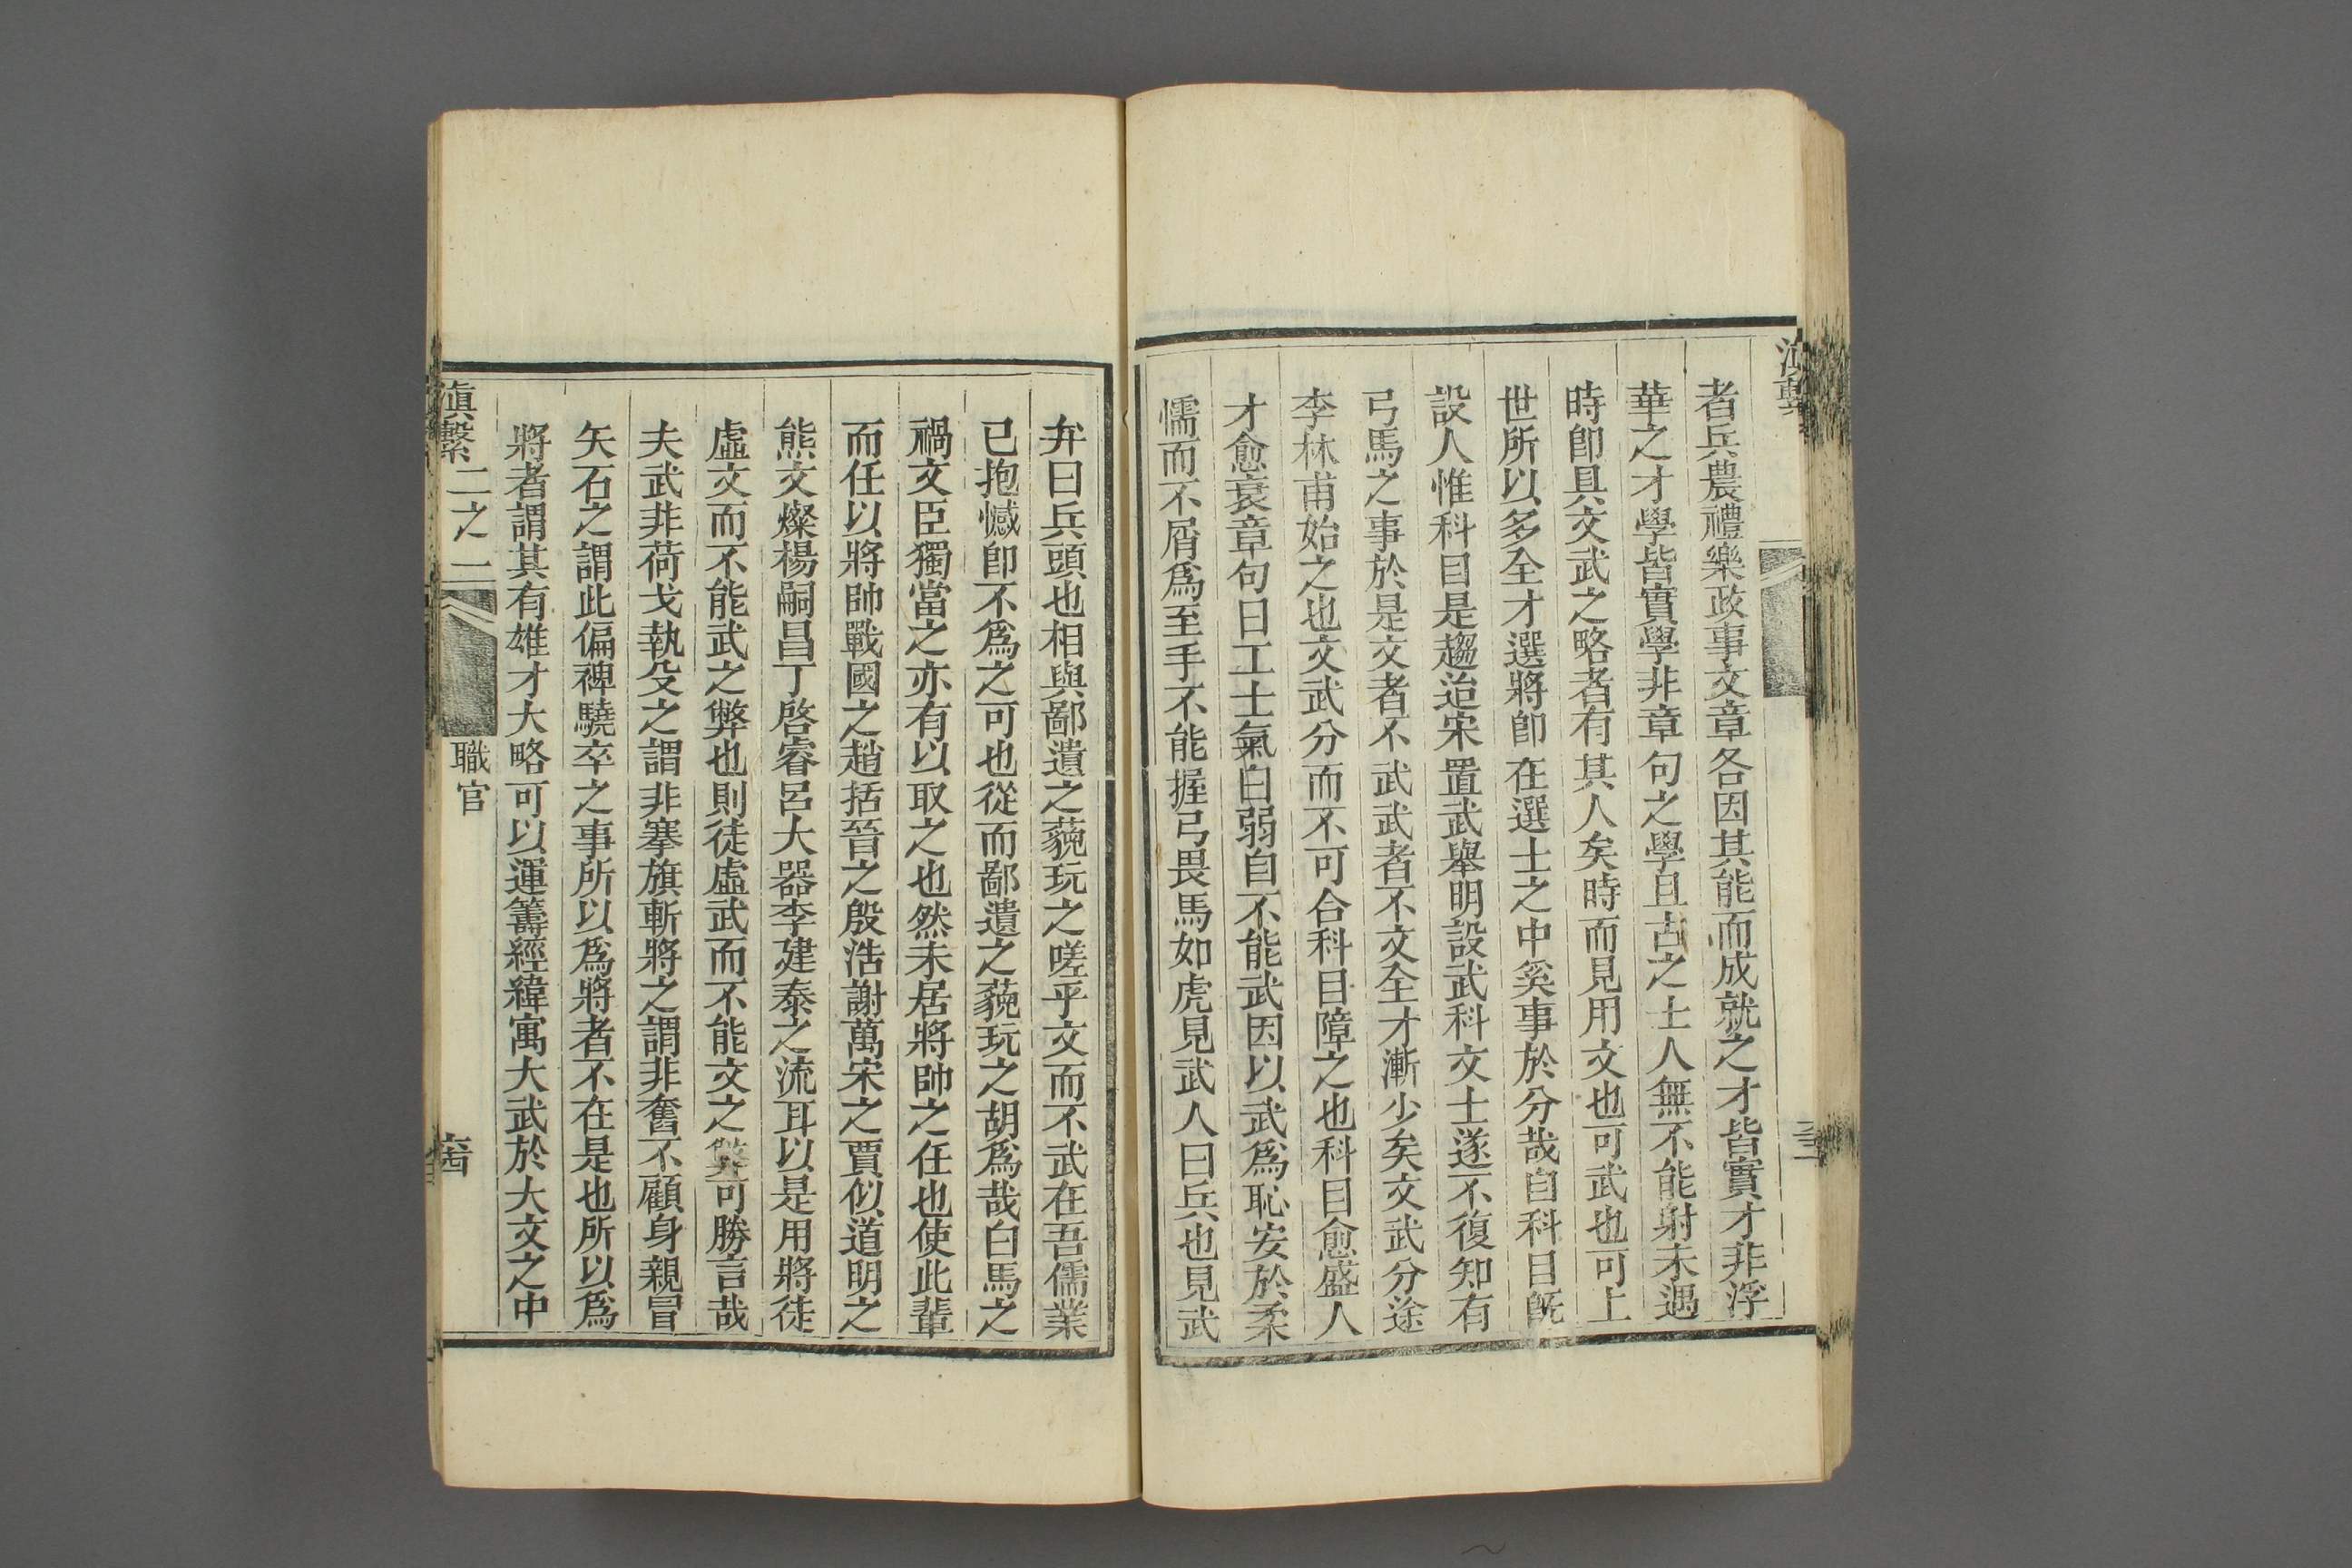 滇繫
者兵農禮樂政事文章各因其能而成就之才皆實才非浮
華之才學皆實學非章句之學且古之士人無不能射未遇
時卽具文武之略者有其人矣時而見用文也可武也可上
世所以多全才選將卽在選士之中奚事於分哉自科目旣
設人惟科目是趨迨宋置武舉明設武科文士遂不復知有
弓馬之事於是文者不武武者不文全才漸少矣文武分途
李林甫始之也文武分而不可合科目障之也科目愈盛人
才愈衰章句日工士氣日弱自不能武因以武爲恥安於柔
懦而不屑爲至手不能握弓畏馬如虎見武人曰兵也見武
弁曰兵頭也相與鄙遺之藐玩之嗟乎文而不武在吾儒業
已抱憾卽不爲之可也從而鄙遺之藐玩之胡爲哉白馬之
禍文臣獨當之亦有以取之也然未居將帥之任也使此輩
而任以將帥戰國之趙括晉之殷浩謝萬宋之賈似道明之
熊文燦楊嗣昌丁啓睿呂大器李建泰之流耳以是用將徒
虛文而不能武之弊也則徒虛武而不能文之弊可勝言哉
夫武非荷戈執殳之謂非搴旗斬將之謂非奮不顧身親冒
矢石之謂此偏裨驍卒之事所以爲將者不在是也所以爲
將者謂其有雄才大略可以運籌經緯寓大武於大文之中
滇繫 二之二 職官